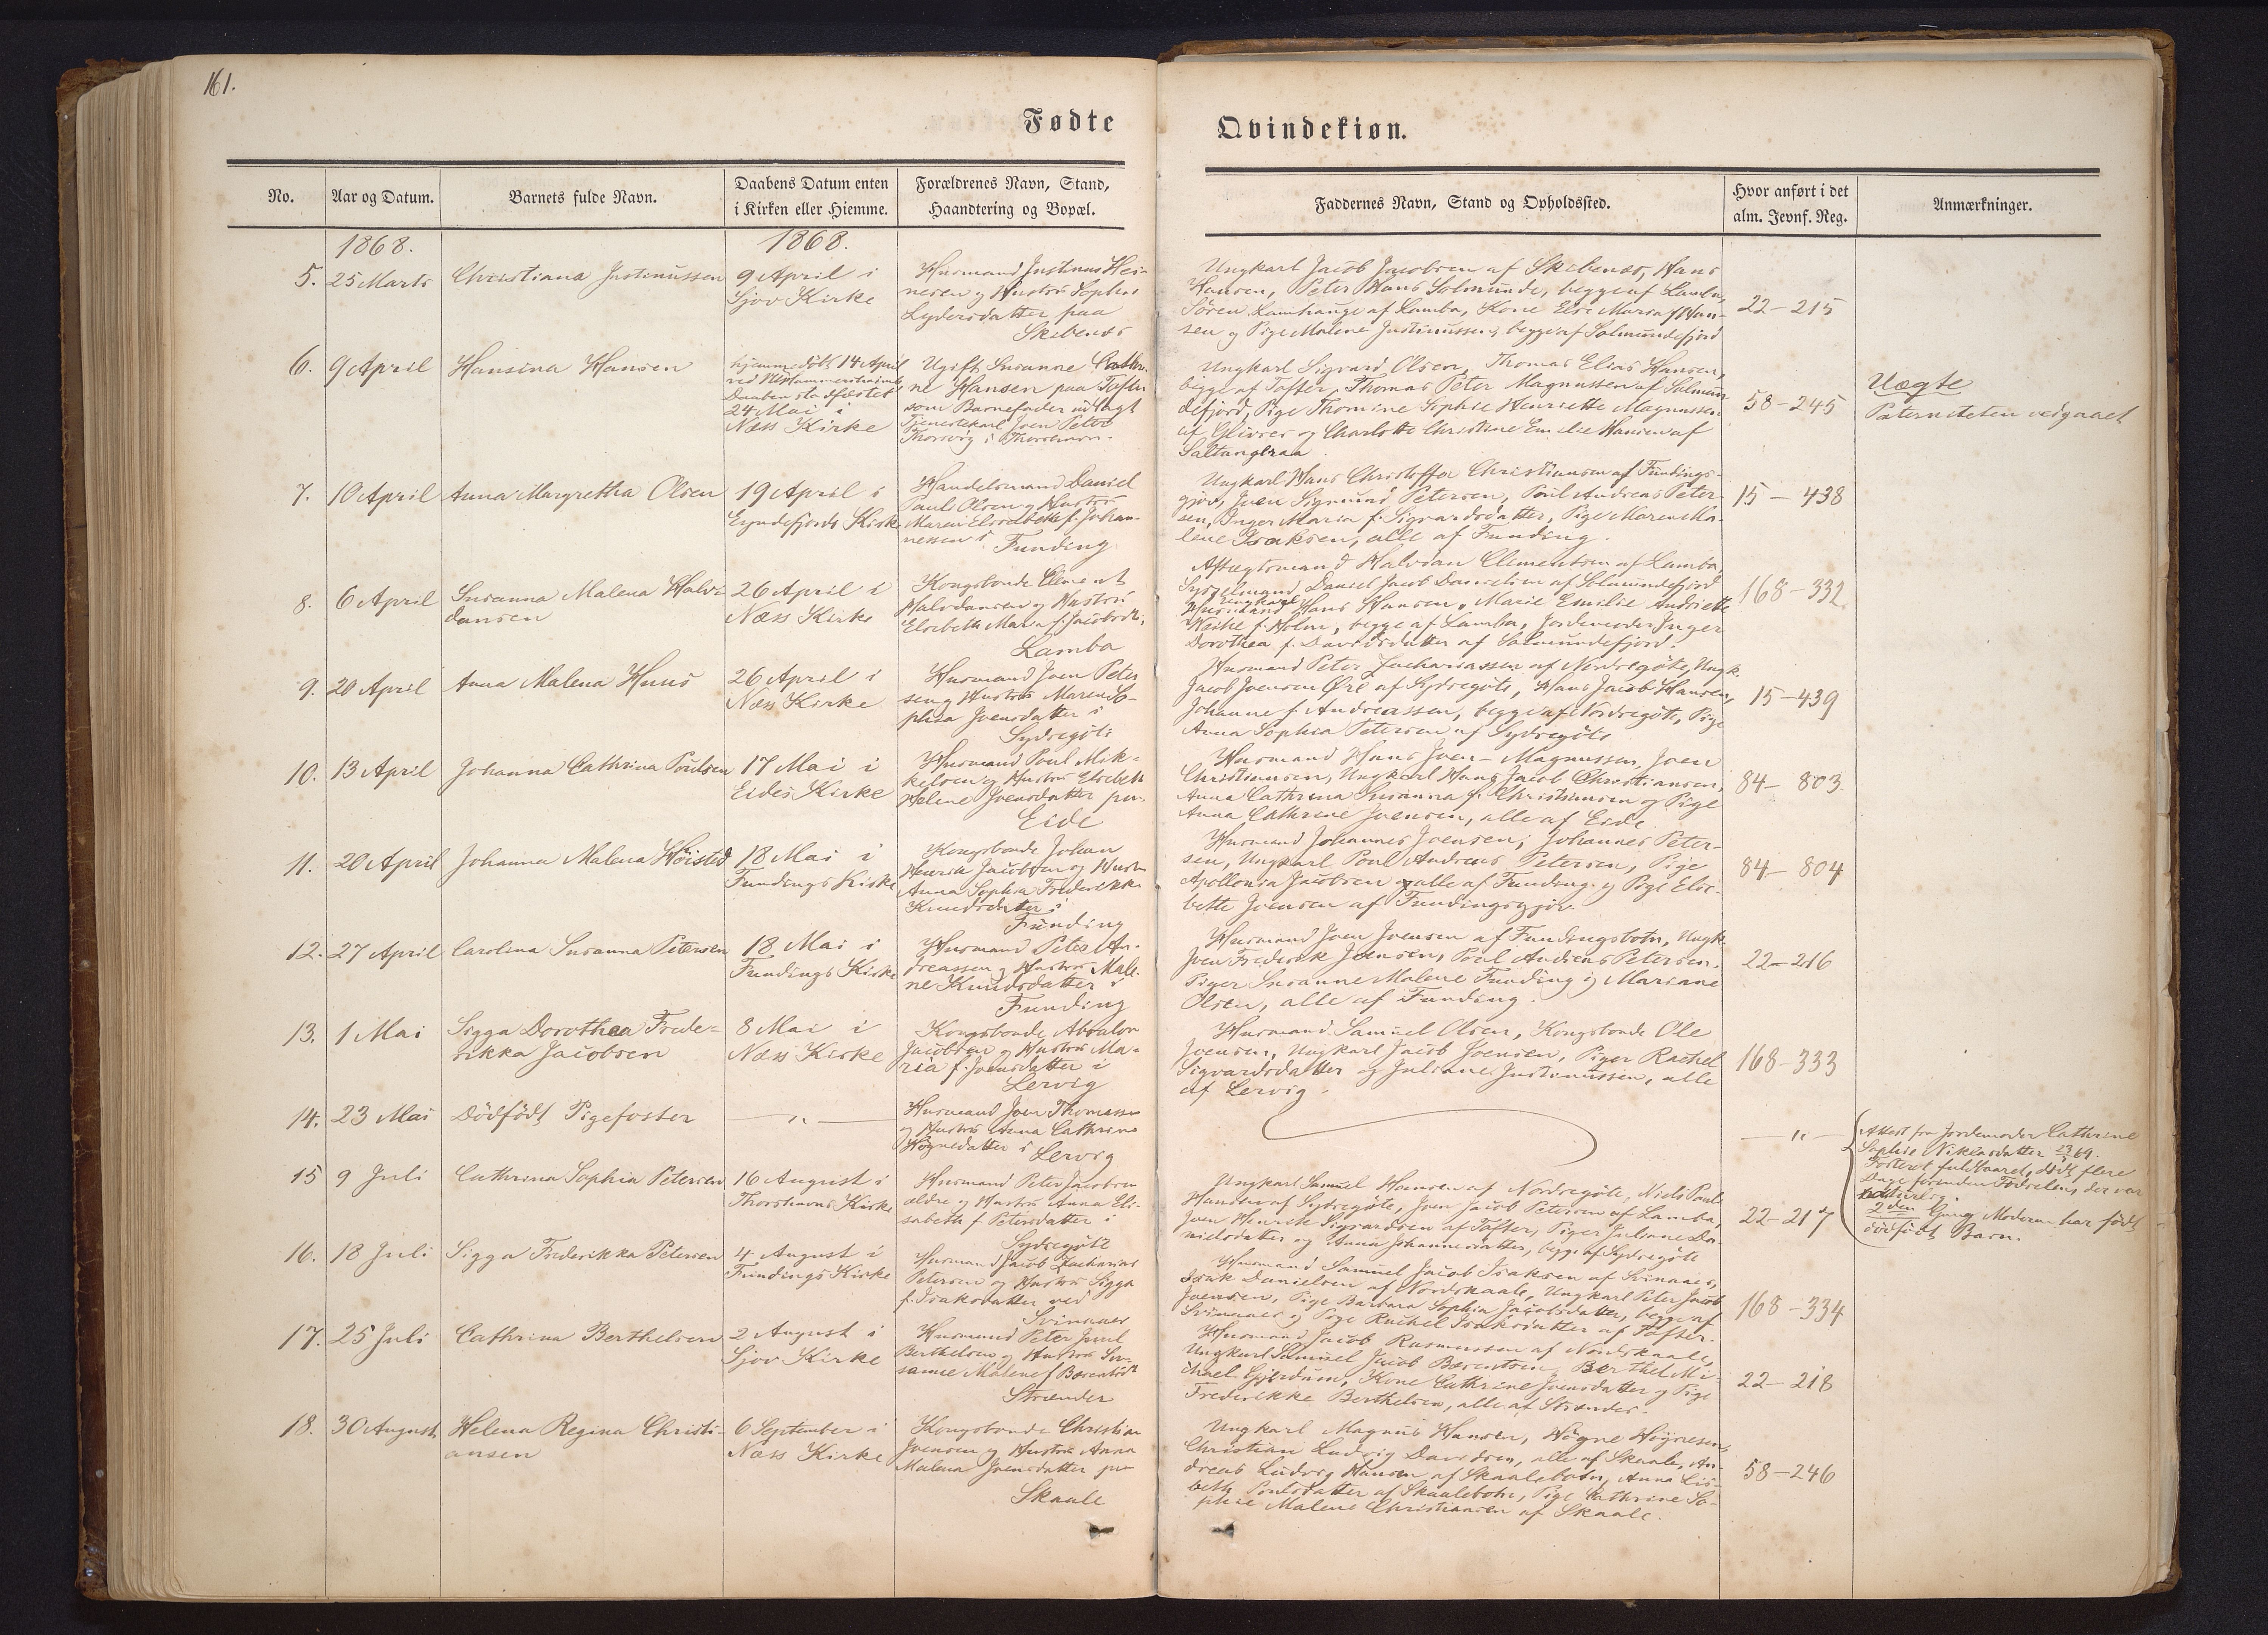 161.
Fødte
Qvindekiøn.
No.
Aar og Datum.
Barnets fulde Navn.
Daabens Datum enten
i Kirken eller Hiemme.
Forældrenes Navn, Stand,
Haandtering og Bopæl.
Faddernes Navn, Stand og Opholdssted.
Hvor anført i det
alm. Jevnf. Reg.
Anmærkninger.
1868.
1868.
5.
25 Marts
Christiana Justinussen
9 April i
Sjov Kirke
Husmand Justinus Hei-
nesen og Hustru Sophie
Lydersdatter paa
Skibenæs
Ungkarl Jacob Jacobsen af Skibenæs, Hans
Hansen, Peter Hans Solmunde, begge af Lamba,
Søren Lamhauge af Lamba, Kone Else Maria f Han-
sen og Pige Malene Justinussen, begge af Solmundefjord
22-215
6.
9 April
Hansina Hansen
hjemmedöbt 14 April
Daaben stadfæstet
24 Mai i
Næss Kirke
Ugift Susanne Cathri-
ne Hansen paa Tofte
som Barnefader udlagt
Tjenestekarl Joen Peter
Thorsvig i Thorshavn.
Ungkarl Sigvard Olsen, Thomas Elias Hansen,
begge af Tofter, Thomas Peter Magnussen af Solmun
defjord, Pige Thomine Sophie Henriette Magnussen
af Glivrer og Charlotte Christine Emilie Hansen af
Saltangeraa
58-245
Uægte
Paterniteten vedgaaet
7.
10 April
Anna Margretha Olsen
19 April i
Eyndefjords Kirke
Handelsmand Daniel
Paul Olsen og Hustru
Maren Elsebeth f. Johan-
nessen i
Funding
Ungkarl Hans Christoffer Christiansen af Fundings-
gjov, Joen Sigmund Petersen, Poul Andreas Peter-
sen, Inger Maria f. Sigvardsdatter, Pige Maren Ma-
lene Isaksen, alle af Funding.
15 - 438
8.
6 April
Susanna Malena Halv-
dansen
26 April i
Næss Kirke
Kongsbonde Clement
Halvdansen og Hustru
Elsebeth Maria f. Jacobsdtr,
Lamba
Aftægtsmand Halvdan Clementsen af Lamba,
Sysselmand Daniel Jacob Danielsen af Solmundefjord
Ungkarl
Hans Hansen, Marie Emilie Andriette
f. Holm, begge af Lamba, Jordemoder Inger
Dorothea f. Davidsdatter af Solmundefjord.
168-332.
9.
20 April
Anna Malena Huus
26 April i
Næss Kirke
Husmand Joen Peter
sen og Hustru Maren So-
phia Joensdatter i
Sydregöte
Husmand Peter Zachariassen af Nordregöte, Ungk.
Jacob Joensen Öre af Sydregöte, Hans Jacob Hansen,
Johanne f. Andreassen, begge af Nordregöte, Pige
Anna Sophia Petersen af Sydregöte
15-439
10.
13 April
Johanna Cathrina Poulsen
17 Mai i
Eides Kirke
Husmand Poul Mik-
kelsen og Hustru Elsebeth
Helene Joensdatter paa
Eide
Husmand Hans Joen-Magnussen, Joen
Christiansen, Ungkarl Hans Jacob Christiansen,
Anna Cathrina Susanna f. Christiansen og Pige
Anna Cathrine Joensen, alle af Eide.
84-803.
11.
20 April
Johanna Malena Höisted
18 Mai i
Fundings Kirke
Kongsbonde Johan
Henrik Jacobsen og Hustru
Anna Sophia Frederikke
Knudsdatter i
Funding
Husmand Johannes Joensen, Johannes Peter-
sen, Ungkarl Poul Andreas Petersen, Pige
Apollonia Jacobsen alle af Funding og Pige Else-
beth Joensen af Fundingsgjov.
84-804
12.
27 April
Carolina Susanna Petersen
18 Mai i
Fundings Kirke
Husmand Peter An-
dreassen og Hustru Male-
ne Knudsdatter i
Funding
Husmand Joen Joensen af Fundingsbotn, Ungk.
Joen Frederik Joensen, Poul Andreas Petersen,
Piger Susanne Malene Funding og Mariane
Olsen, alle af Funding.
22-216
13.
1 Mai
Sigga Dorothea Frede-
rikka Jacobsen
8 Mai i
Næss Kirke
Kongsbonde Absalon
Jacobsen og Hustru Ma-
ria f. Joensdatter i
Lervig
Husmand Samuel Olsen, Kongsbonde Ole
Joensen, Ungkarl Jacob Joensen, Piger Rachel
Sigvardsdatter og Juliane Justinussen, alle
af Lervig.
168-333
14.
23 Mai
Dödfödt Pigefoster
— „ —
Husmand Joen Thomassen
og Hustru Anna Cathrine
Högnedatter i Lervig
— „ —
Attest fra Jordemoder Cathrine
Sophie Niklasdatter
Fosteret fuldbaaret, dödt flere
Dage forinden Födselen, der var
naturlig.
2den Gang Moderen har födt
dödfödt Barn.
15
9 Juli
Cathrina Sophia Petersen
16 August i
Thorshavns Kirke
Husmand Peter Jacobsen
ældre og Hustru Anna Eli-
sabeth f Petersdatter i
Sydregöte
Ungkarl Samuel Hansen af Nordregöte, Niels Paul
Hansen af Sydregöte, Joen Jacob Petersen af Lamba,
Joen Henrik Sigvardsen af Tofter, Piger Juliane Da-
nielsdatter og Anna Johannesdatter, begge af Sydregöte
22-217
16.
18 Juli
Sigga Frederikka Petersen
4 August i
Fundings Kirke
Husmand Jacob Zacharias
Petersen og Hustru Sigga
f. Isaksdatter ved
Svinaaer
Husmand Samuel Jacob Isaksen af Svinaaer,
Isak Danielsen af Nordskaale, Ungkarl Peter Jacob
Joensen, Pige Barbara Sophia Jacobsdatter, begge af
Svinaaer og Pige Rachel Isaksdatter af Tofter.
168-334
17.
25 Juli
Cathrina Berthelsen
2 August i
Sjov Kirke
Husmand Peter Juul
Berthelsen og Hustru Su-
sanne Malene f Barentsdtr
Strænder
Husmand Jacob Rasmussen af Nordskaale,
Ungkarl Samuel Jacob Barentsen, Berthel Mi-
chael Gjerdum, Kone Cathrine Joensdatter og Pige
Frederikke Berthelsen, alle af Strænder.
22-218
18.
30 August
Helena Regina Christi-
ansen
6 September i
Næss Kirke
Kongsbonde Christian
Joensen og Hustru Anna
Malena Joensdatter paa
Skaale
Ungkarl Magnus Hansen, Högne Högnesen,
Christian Ludvig Davidsen, alle af Skaale, An-
dreas Ludvig Hansen af Skaalebotn, Anna Lis-
beth Poulsdatter af Skaalebotn, Pige Cathrine So-
phie Malene Christiansen af Skaale.
58-246